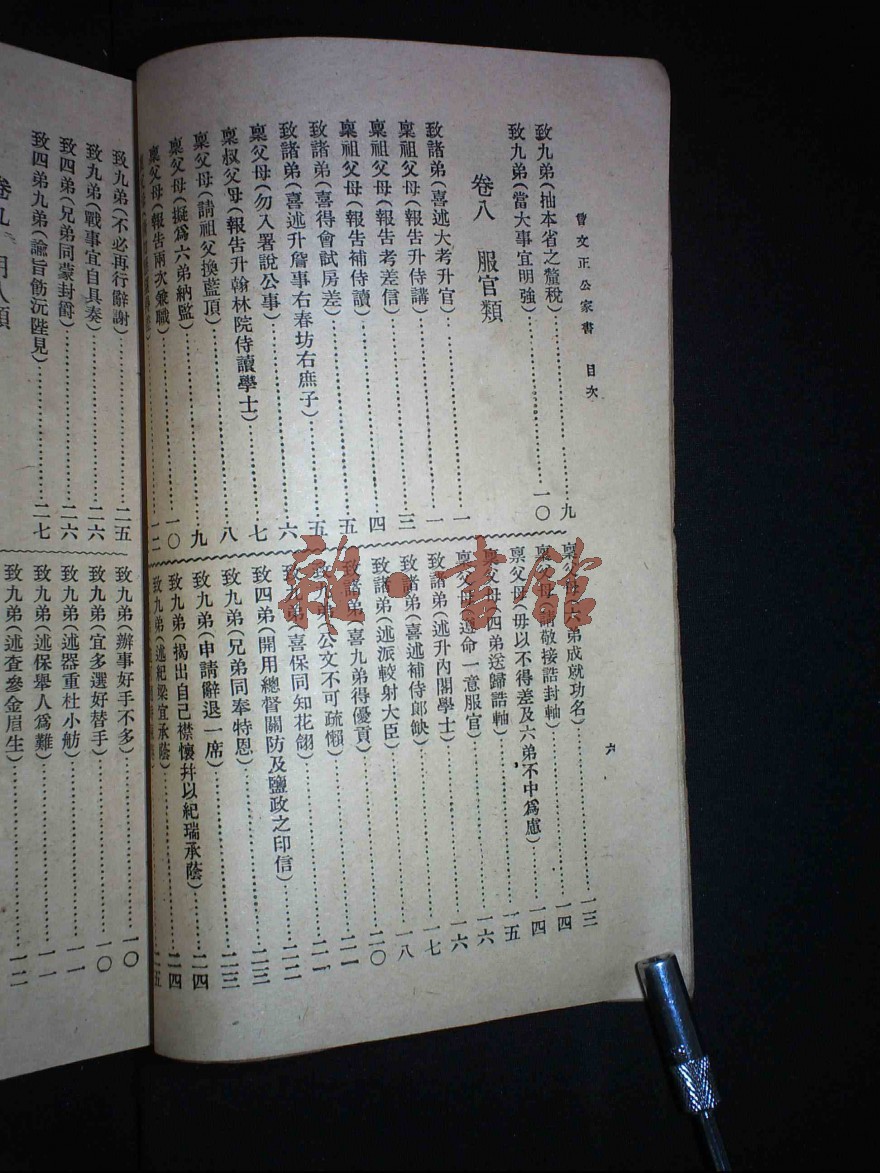 曾文正公家書 目次
六
致九弟(抽本省之釐稅)……九
致九弟(當大事宜明強)……一〇
卷八 服官類
致諸弟(喜述大考升官)……一
稟祖父母(報告升侍講)……一
稟祖父母(報告考差信)……三
稟祖父母(報告補侍讀)……四
致諸弟(喜得會試房差)……五
致諸弟(喜述升詹事右春坊右庶子)……五
稟父母(勿入署說公事)……六
稟叔父母(報告升翰林院侍讀學士)……七
稟父母(請祖父換藍頂)……八
稟父母(擬爲六弟納監)……九
稟父母(報告兩次兼職)……一〇
一二
稟父母(六弟成就功名)……一三
稟父母(請敬接誥封軸)……一四
稟父母(毋以不得差及六弟不中爲慮)……一四
稟父母(四弟送歸誥軸)……一五
稟父母(遵命一意服官)……一六
致諸弟(述升內閣學士)……一六
致諸弟(喜述補侍郞缺)……一七
致諸弟(述派較射大臣)……一八
致諸弟(喜九弟得優貢)……二〇
公文不可疏懶)……二一
致九弟(喜保同知花翎)……二一
致四弟(開用總督關防及鹽政之印信)……二二
致九弟(兄弟同奉特恩)……二三
致九弟(申請辭退一席)……二三
致九弟(揭出自己襟懷幷以紀瑞承蔭)……二四
致九弟(述紀梁宜承蔭)……二四
二五
致九弟(不必再行辭謝)……二五
致九弟(戰事宜自具奏)……二六
致四弟(兄弟同蒙封爵)……二六
致四弟九弟(諭旨飭沅陛見)……二七
致九弟(辦事好手不多)……一〇
致九弟(宜多選好替手)……一〇
致九弟(述器重杜小舫)……一一
致九弟(述保舉人爲難)……一一
致九弟(述查參金眉生)……一二
雜·書館